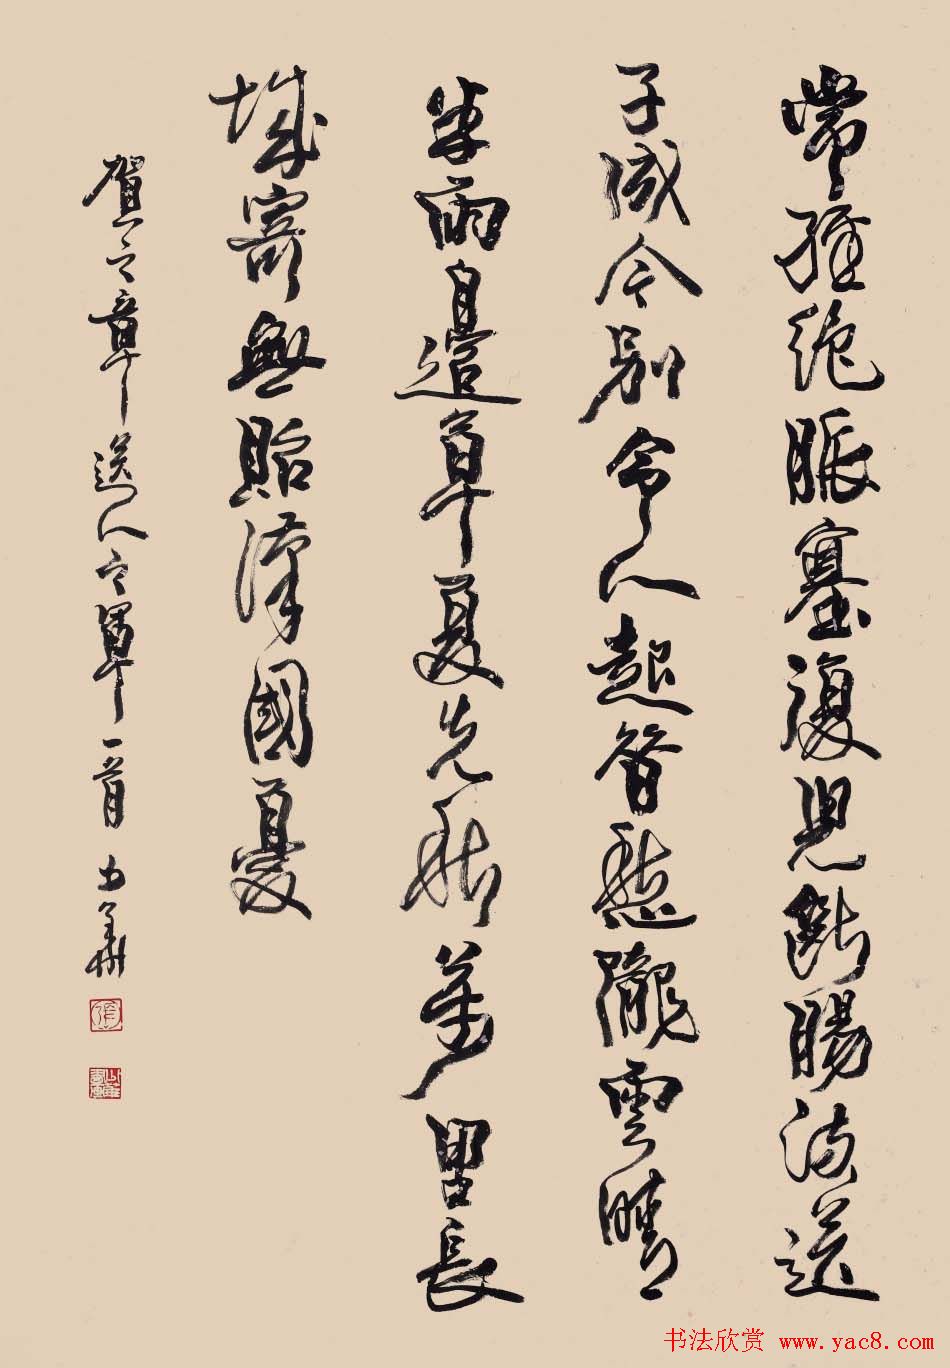 常經絕脈塞復見斷腸流送
子成今別令人起昔愁隴雲晴
半雨邊草夏先秋萬里長
城寄無貽漢國憂
賀之章送人之軍一首
书法欣赏 www.yac8.com